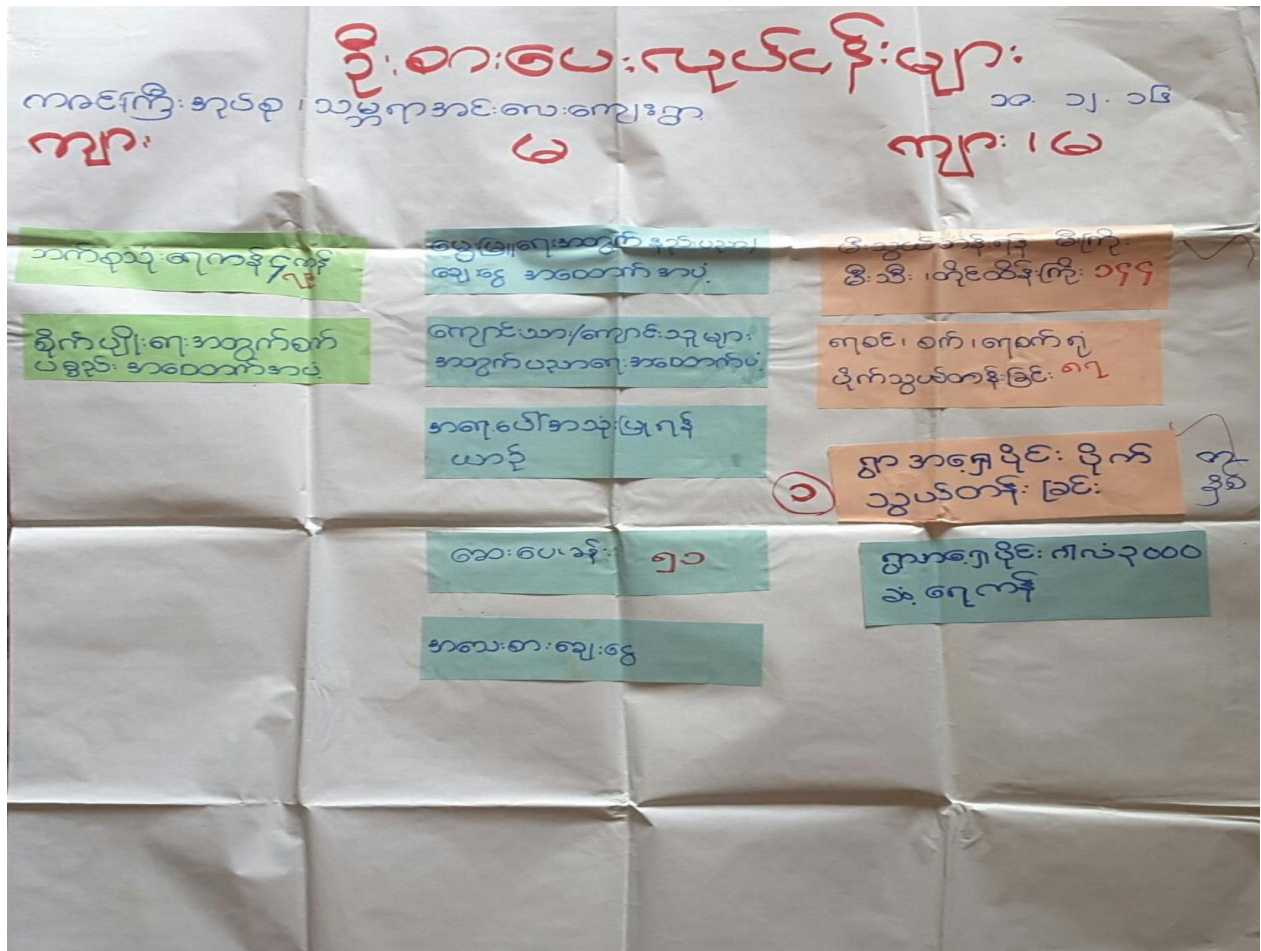 ဦးစားပေးလုပ်ငန်းများ
ကဇင်းကြီးအုပ်စု၊ သမ္ဘရာအင်းလေးကျေးရွာ
၁၈. ၁၂. ၁၆
ကျား
မ
ကျား၊ မ
ဘက်စုံသုံးရေကန် ၄ကန်
စိုက်ပျိုးရေးအတွက်စက်
ပစ္စည်းအထောက်အပံ့
မွေးမြူရေးအတွက် နည်းပညာ၊
ချေးငွေ အထောက်အပံ့
ကျောင်းသား/ကျောင်းသူများ
အတွက်ပညာရေးအထောက်ပံ့
အရေးပေါ်အသုံးပြုရန်
ယာဉ်
ဆေးပေးခန်း ၅၁
အသေးစားချေးငွေ
မီးသွယ်တန်းရန် မီးကြိုး
မီးသီး၊ တိုင်ထိန်းကြိုး ၁၄၄
ရေစင်၊ စက်၊ ရေစက်ရုံ
ပိုက်သွယ်တန်းခြင်း ၈၇
၁
ရွာအရှေ့ပိုင်း ပိုက်
သွယ်တန်းခြင်း
ရွာအရှေ့ပိုင်း ဂါလံ ၃၀၀၀
ဆံ့ ရေကန်